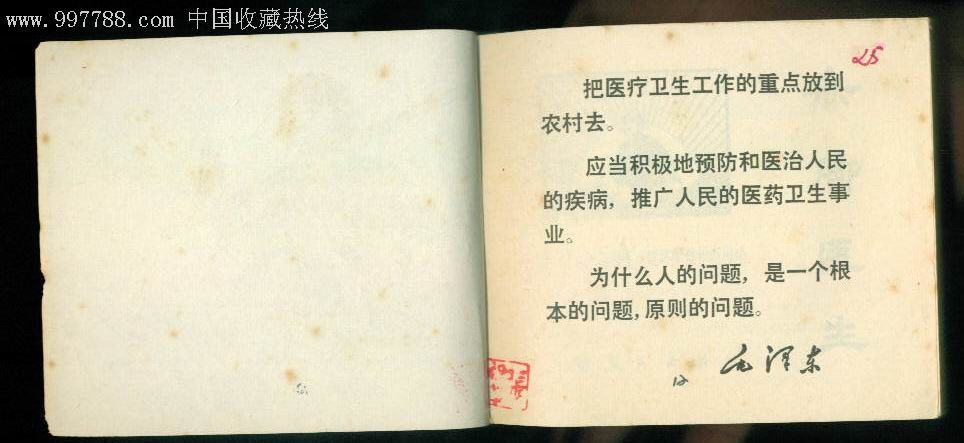 www.997788.com 中国收藏热线
25
把医疗卫生工作的重点放到
农村去。
应当积极地预防和医治人民
的疾病，推广人民的医药卫生事
业。
为什么人的问题，是一个根
本的问题,原则的问题。
毛泽东